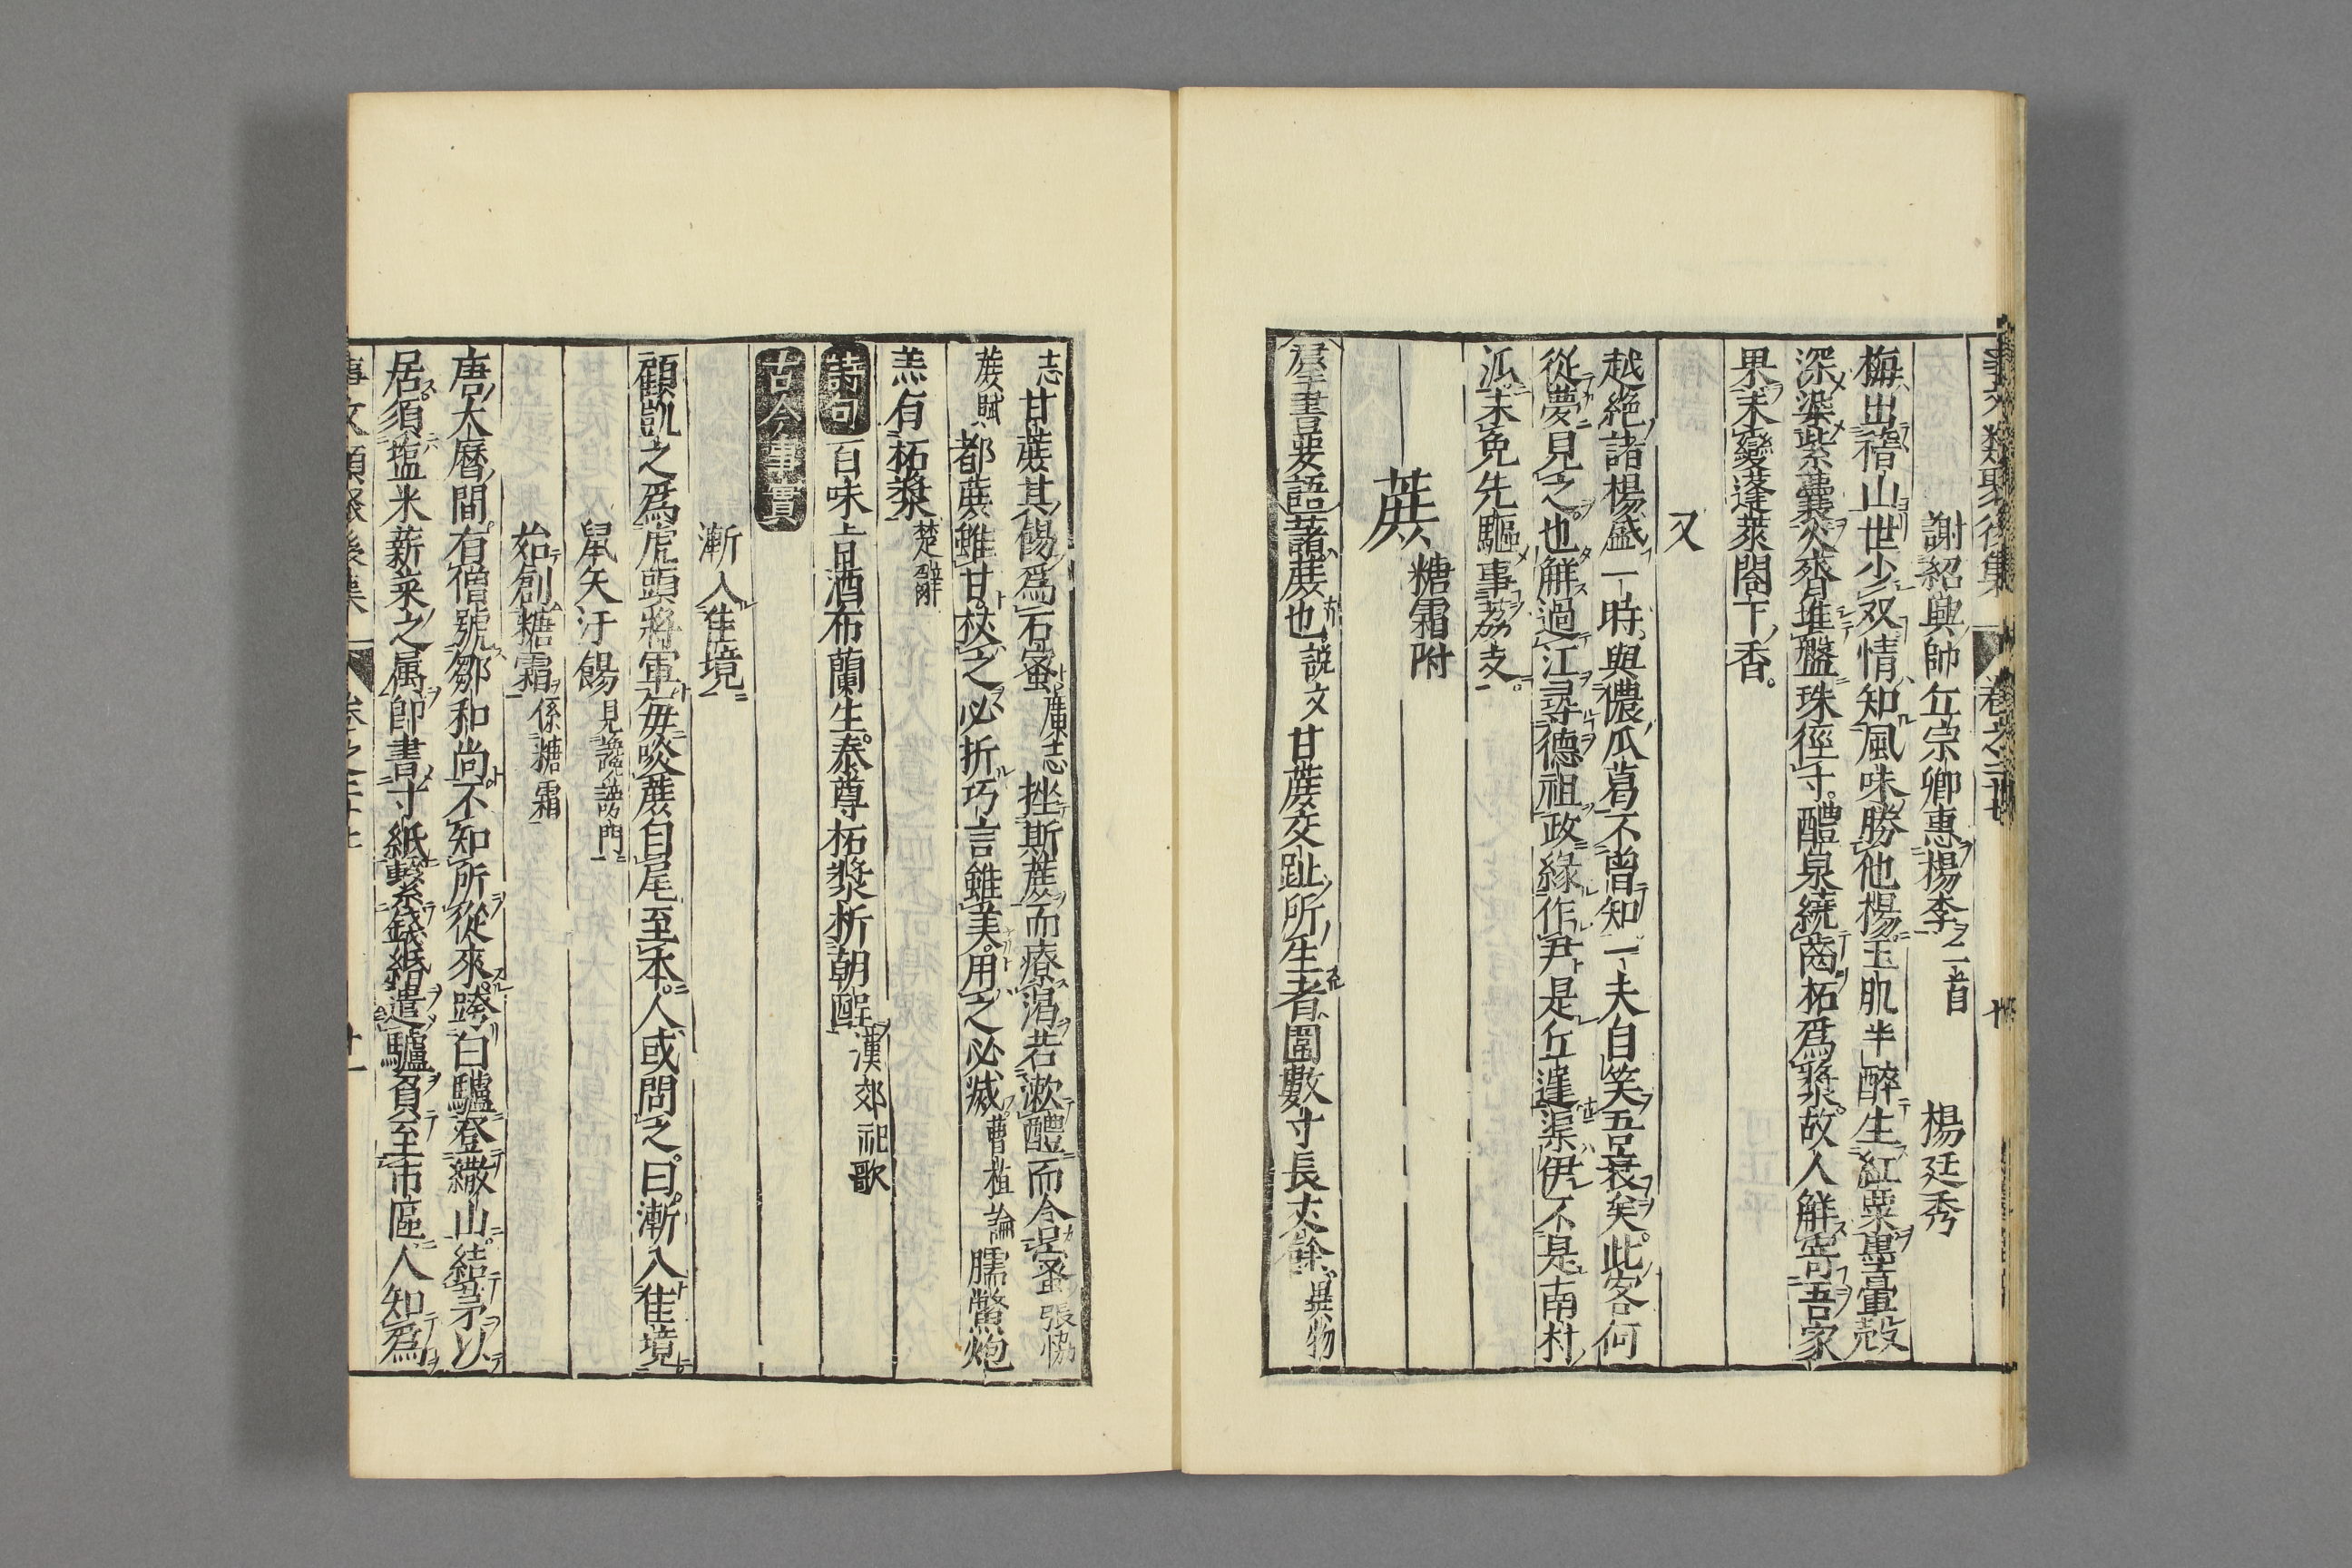 事文類聚後集 卷之二十七
謝紹興帥丘宗卿惠楊李二首 楊廷秀
梅出稽山世少双情知風味勝他楊玉肌半醉生紅粟墨暈殼
深染紫囊火齊堆盤珠徑寸醴泉繞齒柘爲漿故人解寄吾家
果未變蓬萊閣下香
又
越絶諸楊盛一時與儂瓜葛不曽知一夫自笑吾衰矣此客何
從夢見之也解過江尋德祖政緣作尹是丘遲渠伊不是南村
派未免先驅事荔支
蔗 糖霜附
群書要語藷蔗也說文甘蔗交趾所生者圍數寸長丈餘異物
志甘蔗其餳爲石蜜廣志挫斯蔗而療渴若漱醴而含蜜張恊
蔗賦都蔗雖甘杖之必折巧言雖美用之必滅曹植論臑鱉炮
羔有柘漿楚辭
詩句百味旨酒布蘭生泰尊柘漿析朝酲漢郊祀歌
古今事實
漸入佳境
顧凱之爲虎頭將軍每啖蔗自尾至本人或問之曰漸入佳境
鼠矢汙餳見讒謗門
始創糖霜係糖霜
唐大曆間有僧號鄒和尚不知所從來跨白驢登繖山結茅以
居須塩米薪菜之属即書寸紙繫錢緡遣驢負至市區人知爲
事文類聚後集 卷之二十七 廿一